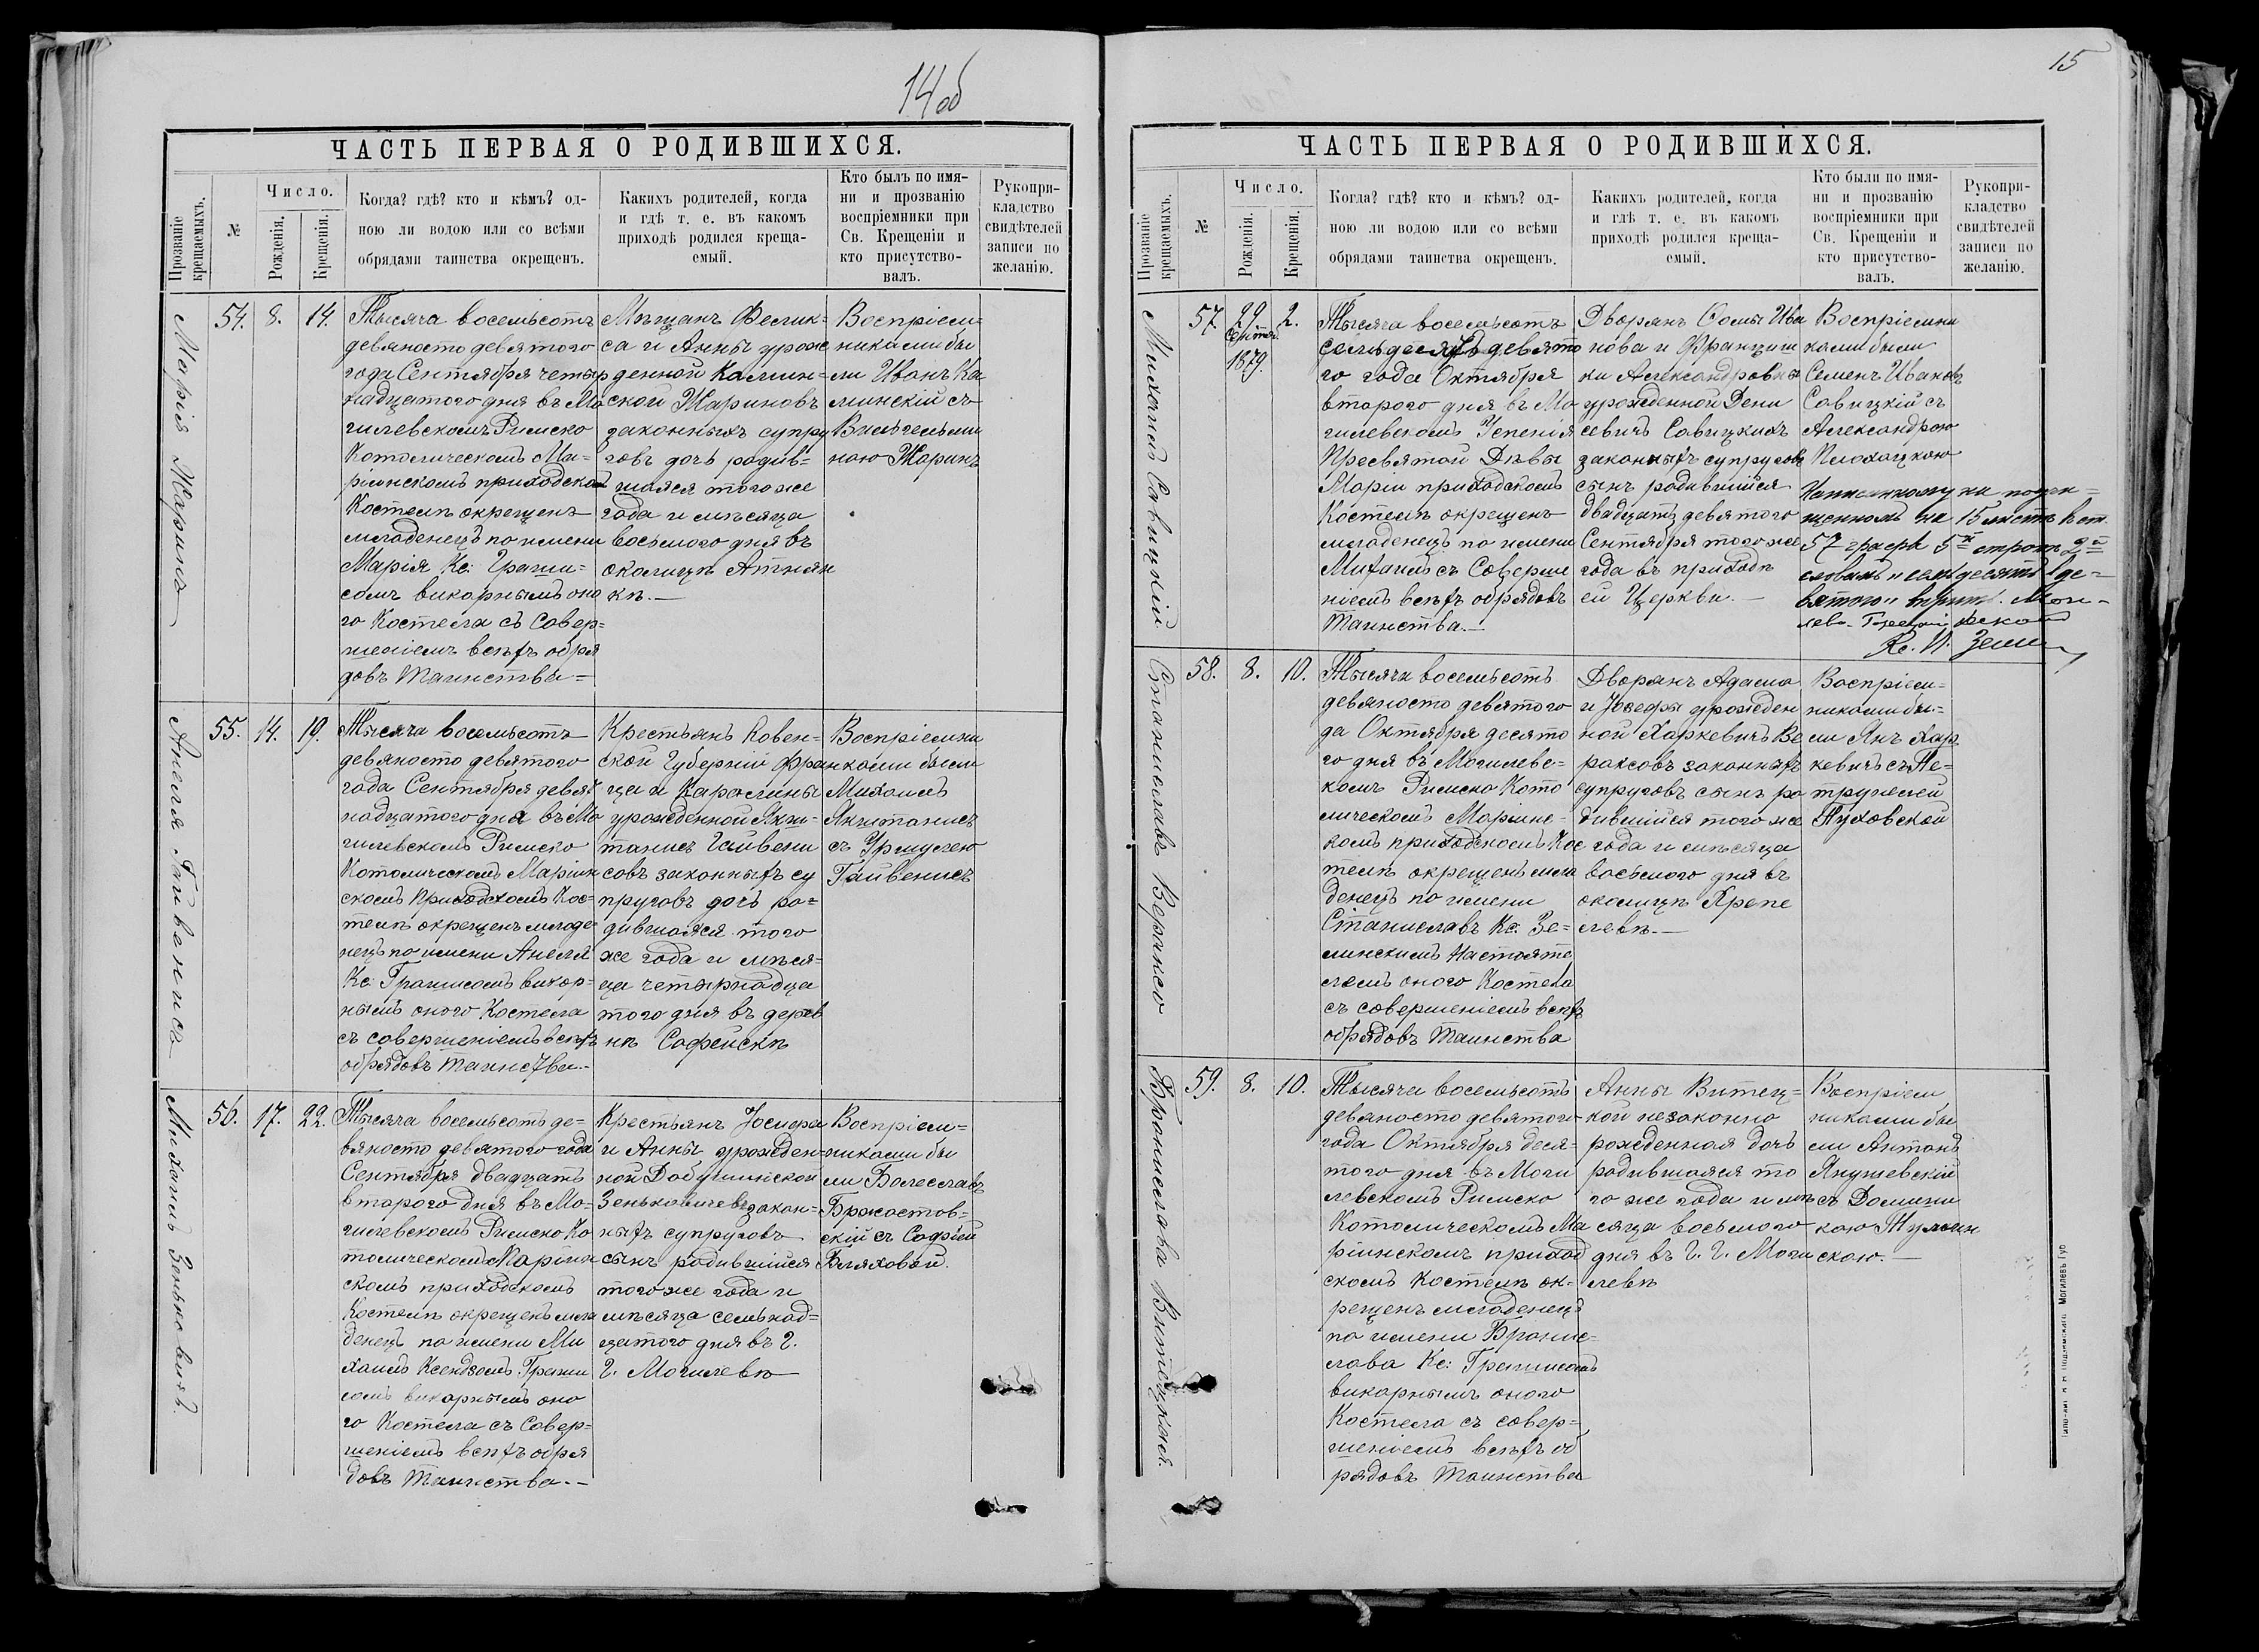 14 об
ЧАСТЬ ПЕРВАЯ О РОДИВШИХСЯ.
Прозваніе крещаемыхъ.
№
Число.
Рожденія.
Крещенія.
Когда? гдѣ? кто и кѣмъ? од-
ною ли водою или со всѣми
обрядами таинства окрещенъ.
Какихъ родителей, когда
и гдѣ т. е. въ какомъ
приходѣ родился креща-
емый.
Кто былъ по имя-
ни и прозванію
воспріемники при
Св. Крещеніи и
кто присутство-
валъ.
Рукопри-
кладство
свидѣтелей
записи по
желанію.
Марія Жаринъ
54. 8. 14.
Тысяча восемьсотъ
девяносто девятого
года Сентября четыр
надцатого дня въ Мо
гилевскомъ Римско
Католическомъ Ма-
ріинскомъ приходском
Костелѣ окрещенъ
младенецъ по имени
Марія Кс: Граши-
сомъ викарнымъ оно
го Костела съ Совер=
шеніемъ всѣхъ обря
довъ Таинства=
Мѣщанъ Феликс=
са и Анны урож
денной Камин=
ской Жариновъ
законныхъ супру
говъ дочь родив=
шаяся того же
года и мѣсяца
восьмого дня въ
околицѣ Атнян
кѣ.—
Воспріем=
никами бы
ли Иванъ Ка
минскій съ
Вильгельми
ною Жаринъ
Анеля Гайвенисъ
55. 14. 19.
Тысяча восемьсотъ
девяносто девятого
года Сентября девят
надцатого дня въ Мо
гилевскомъ Римско
Католическомъ Маріин
скомъ Приходскомъ Кос=
телѣ окрещенъ младе
нецъ по имени Анеля
Кс: Грашисомъ викар=
нымъ оного Костела
съ совершеніемъ всѣхъ
обрядовъ таинства.-
Крестьянъ Ковен=
ской Губерніи Фран
ца и Каролины
урожденной Якш-
танисъ Гайвени
совъ законныхъ су
пруговъ дочь ро=
дившаяся того
же года и мѣся=
ца четырнадца
того дня въ дерев
нѣ Софейскѣ
Воспріемни
ками были
Михаилъ
Якштанисъ
съ Уршулею
Гайвенисъ
Михаилъ Зеньковичъ.
56. 17. 22.
Тысяча восемьсотъ де=
вяносто девятого года
Сентября двадцать
второго дня въ Мо-
гилевскомъ Римско Ка
толическомъ Маріин
скомъ приходскомъ
Костелѣ окрещенъ мла
денецъ по имени Ми
хаилъ Ксендзомъ Граши
сомъ викарнымъ оно
го Костела съ Совер=
шеніемъ всѣхъ обря
довъ Таинства.-
Крестьянъ Іосифа
и Анны урожден=
ной Добушинской
Зеньковичевъ закон=
ныхъ супруговъ
сынъ родившійся
того же года и
мѣсяца семьнад=
цатого дня въ г.
Г. Могилевѣ
Воспріем=
никами бы
ли Болеславъ
Бржостов=
скій съ Софіей
Бляховой.
15
ЧАСТЬ ПЕРВАЯ О РОДИВШИХСЯ.
Прозваніе крещаемыхъ.
№
Число.
Рожденія.
Крещенія.
Когда? гдѣ? кто и кѣмъ? од-
ною ли водою или со всѣми
обрядами таинства окрещенъ.
Какихъ родителей, когда
и гдѣ т. е. въ какомъ
приходѣ родился креща-
емый.
Кто были по имя-
ни и прозванію
воспріемники при
Св. Крещеніи и
кто присутство-
валъ.
Рукопри-
кладство
свидѣтелей
записи по
желанію.
Михаилъ Савицкій
57. 29 Сентяб. 1879. 2.
Тысяча восемьсотъ
семьдесятъ девято
го года Октября
второго дня въ Мо
гилевскомъ Успенія
Пресвятой Дѣвы
Маріи приходскомъ
Костелѣ окрещенъ
младенецъ по имени
Михаилъ съ Соверше
ніемъ всѣхъ обрядовъ
Таинства.—
Дворянъ Фомы Ива
нова и Францишк
ки Александровны
урожденной Дени
севичъ Савицкихъ
законныхъ супругов
сынъ родившійся
двадцать девятого
Сентября того же
года въ приходѣ
ей Церкви.—
Воспріемни
ками были
Семенъ Ивановъ
Савицкій съ
Александрою
Плохоцкою
на 15 листѣ
57 графѣ 5й строкѣ 2й
словамъ "семьдесятъ де=
вятого" вѣрить. Моги-
Станиславъ Вераксо
58. 8. 10.
Тысяча восемьсотъ
девяносто девятого
да Октября десято
го дня въ Могилевс-
комъ Римско Като
лическомъ Маріинс-
комъ приходскомъ Кос
телѣ окрещенъ мла
денецъ по имени
Станиславъ Кс: Зе-
линскимъ Настояте
лемъ оного Костела
съ совершеніемъ всѣхъ
обрядовъ Таинства
Дворянъ Адама
и Юзефы урожден
ной Харкевичъ Ве
раксовъ законныхъ
супруговъ сынъ ро
дившійся того же
года и мѣсяца
восьмого дня въ
околицѣ Хрепе
левѣ.—
Воспріем=
никами бы-
ли Янъ Хар
кевичъ съ Пе=
трунелей
Пуховской
Бронислава Витецкая.
59. 8. 10.
Тысяча восемьсотъ
девяносто девятого
года Октября деся-
того дня въ Моги
левскомъ Римско
Католическомъ Ма
ріинскомъ приход
скомъ Костелѣ ок-
рещенъ младенецъ
по имени Бронис-
лава Кс: Грашисомъ
викарнымъ оного
Костела съ совер=
шеніемъ всѣхъ об
рядовъ Таинства
Анны Витец=
кой незаконно
рожденная дочь
родившаяся то
го же года и мѣ
сяца восьмого
дня въ г. Г. Моги
левѣ
Воспріем
никами бы
ли Антонъ
Янушевскій
съ Домини
кою Тульчин
скою.—